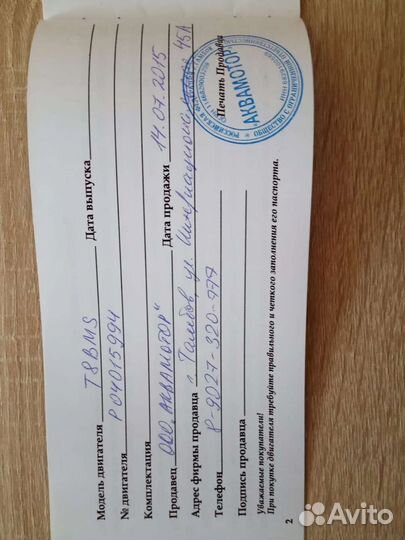 Модель двигателя T8BMS Дата выпуска
№ двигателя P04015994
Комплектация
Продавец ООО "АКВАМОТОР" Дата продажи 14.07.2015
Адрес фирмы продавца г. Тамбов, ул. Интернациональная 45А
Телефон 8-9027-320-779
Подпись продавца Печать Продавца
АКВАМОТОР
Уважаемые покупатели!
При покупке двигателя требуйте правильного и четкого заполнения его паспорта.
2
Avito